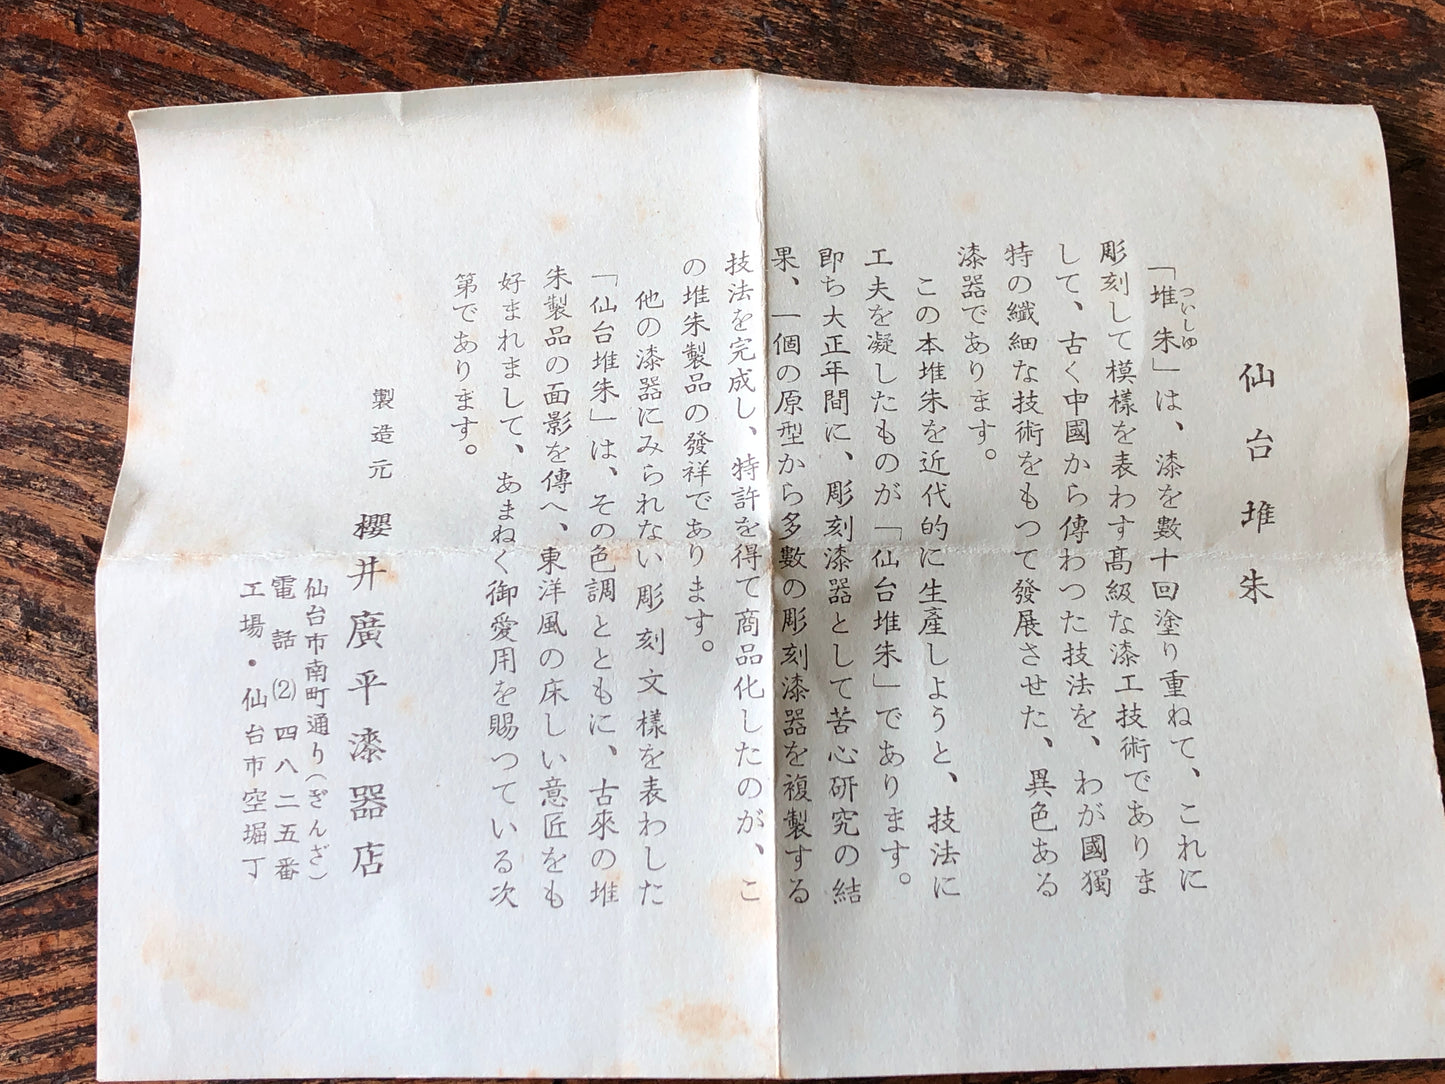 仙台堆朱
「堆朱」は、漆を數十回塗り重ねて、これに
ついしゆ
彫刻して模様を表わす高級な漆工技術でありま
して、古く中國から傳わつた技法を、わが國獨
特の纖細な技術をもつて發展させた、異色ある
漆器であります。
この本堆朱を近代的に生産しようと、技法に
工夫を凝したものが「仙台堆朱」であります。
即ち大正年間に、彫刻漆器として苦心研究の結
果、一個の原型から多數の彫刻漆器を複製する
技法を完成し、特許を得て商品化したのが、こ
の堆朱製品の發祥であります。
他の漆器にみられない彫刻文様を表わした
「仙台堆朱」は、その色調とともに、古來の堆
朱製品の面影を傳へ、東洋風の床しい意匠をも
好まれまして、あまねく御愛用を賜つている次
第であります。
製造元 櫻井廣平漆器店
仙台市南町通り(ぎんざ)
電話(2)四八二五番
工場・仙台市空堀丁